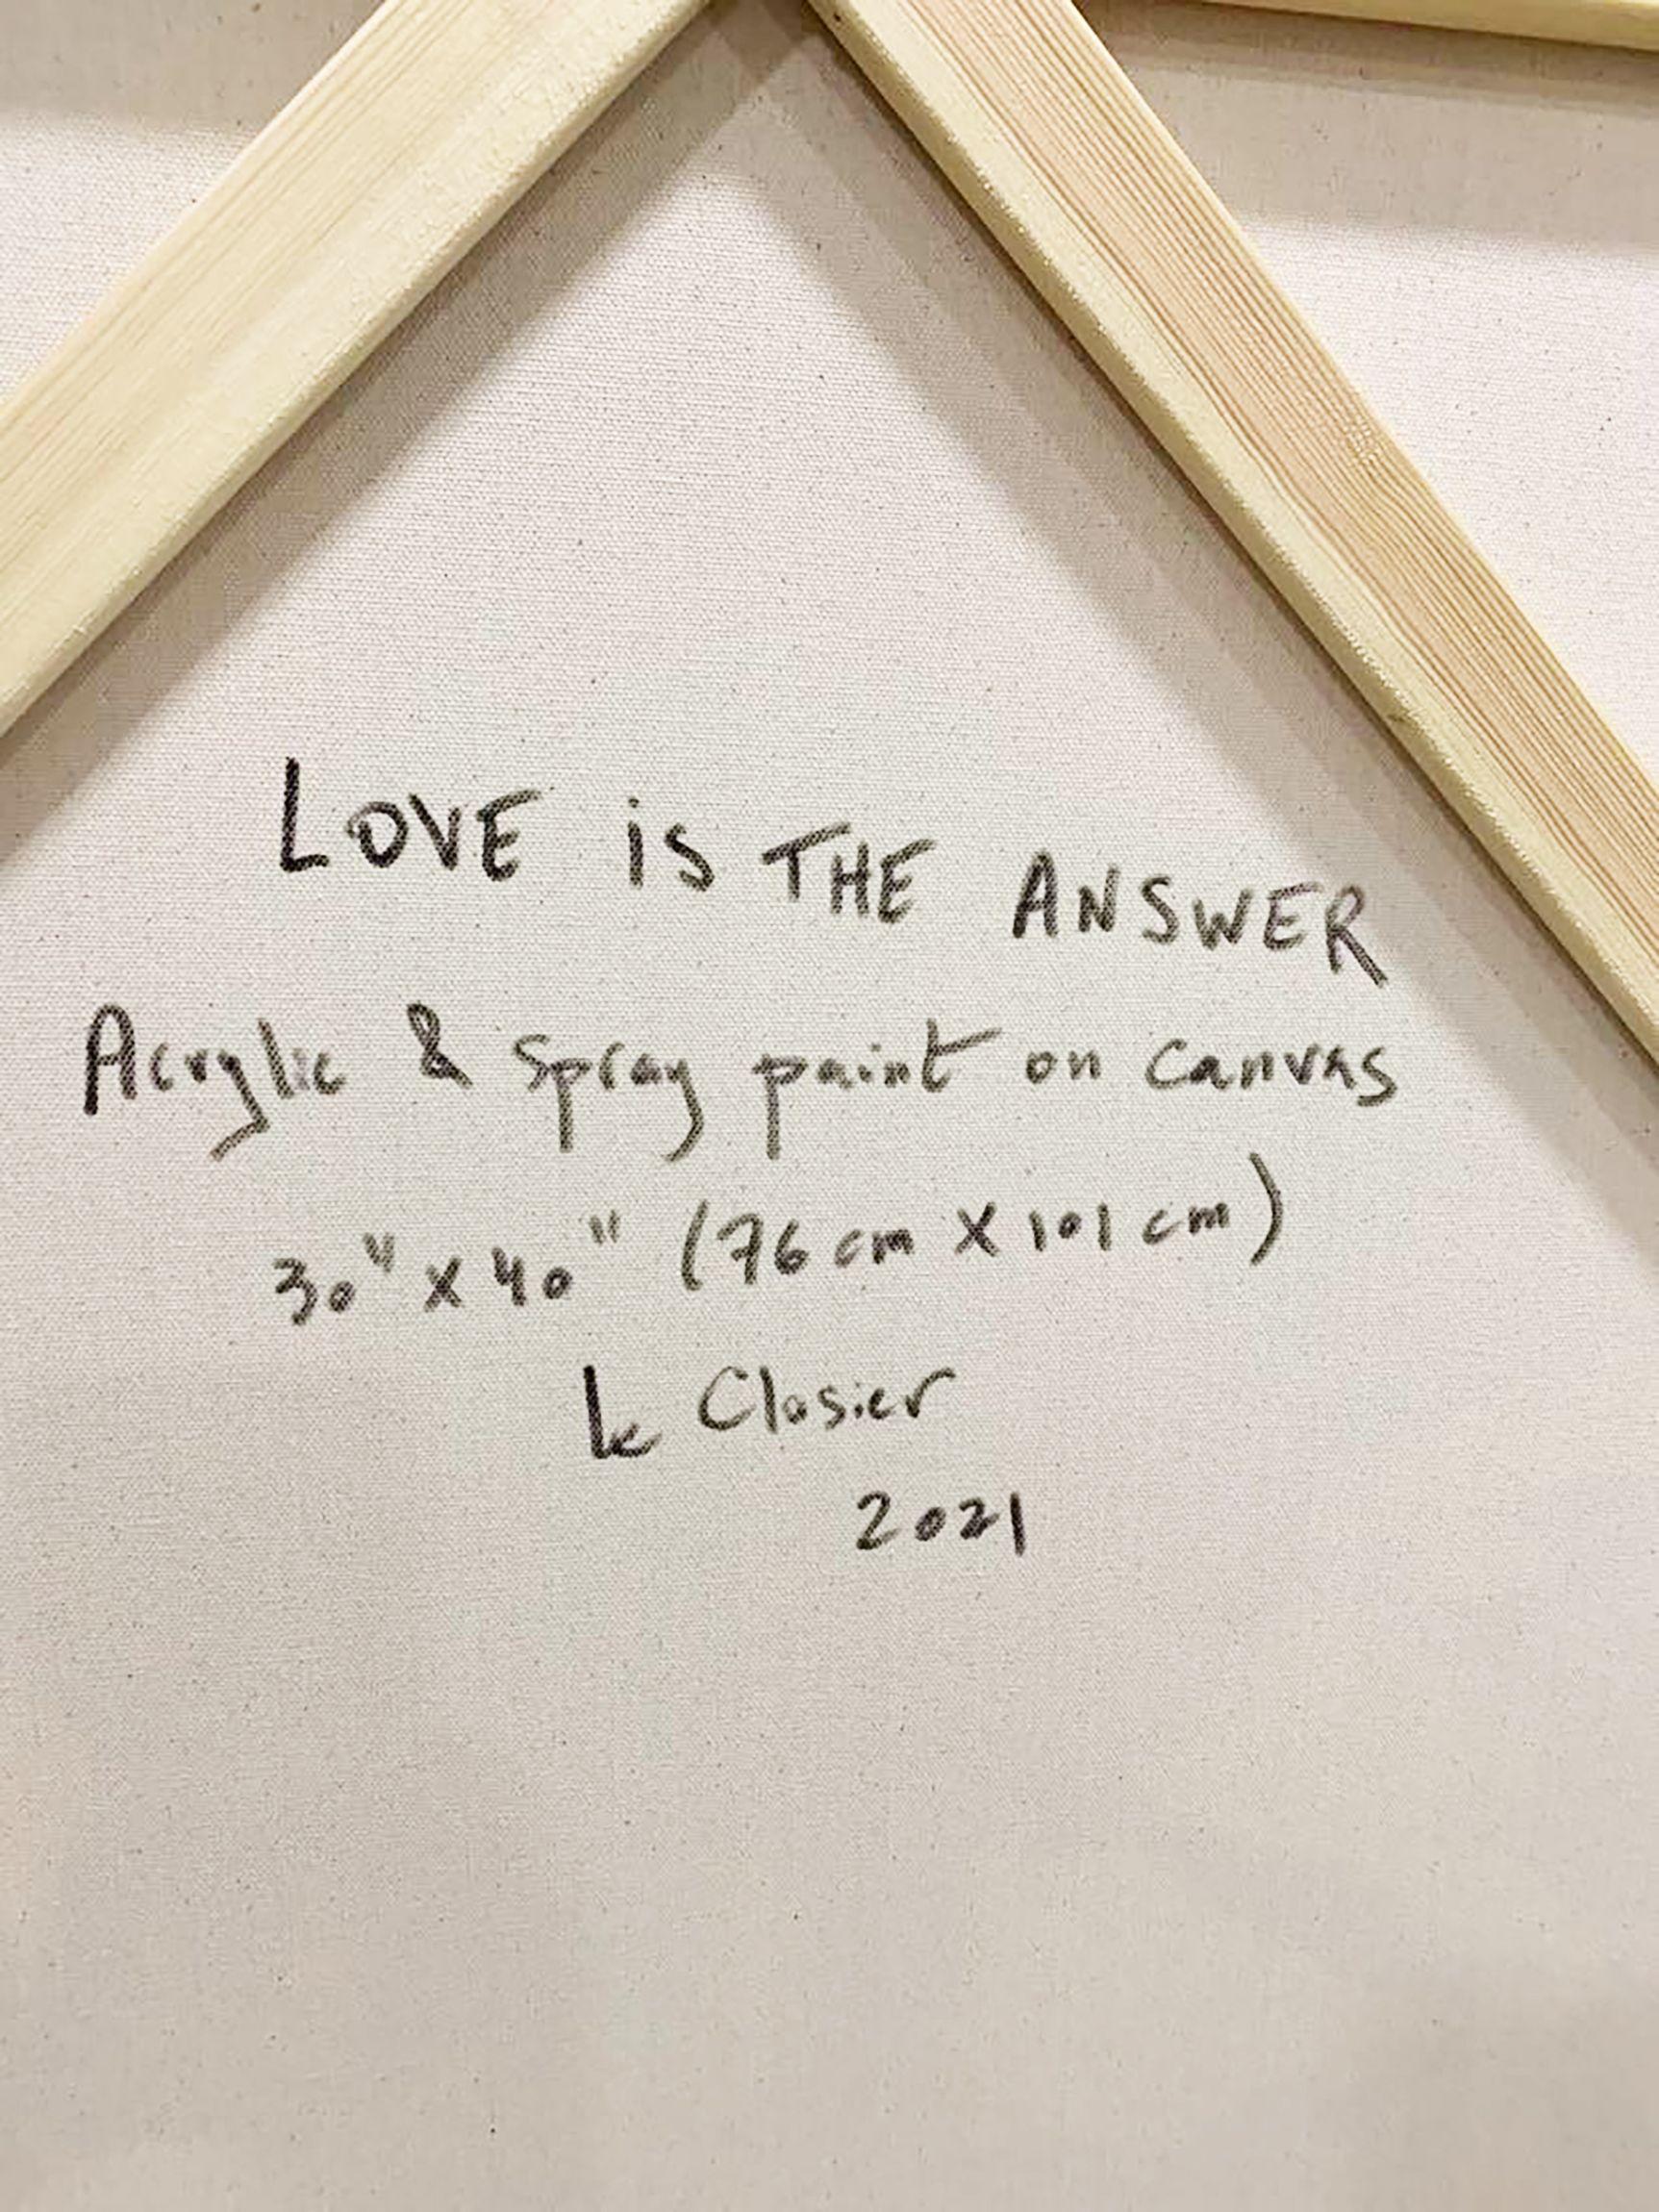 LOVE is THE ANSWER
Acrylic & Spray paint on canvas
30" x 40" (76 cm X 101 cm)
Le Closier
2021